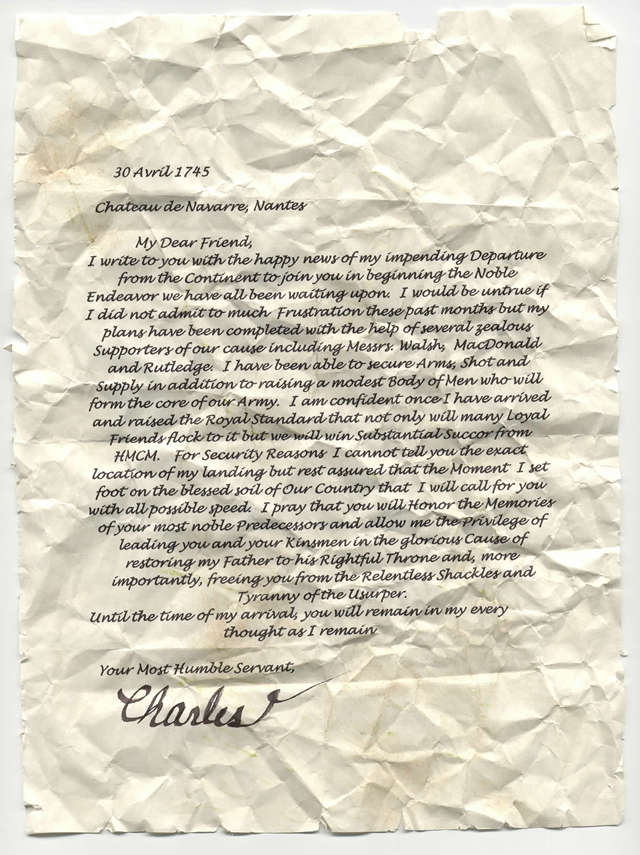 30 Avril 1745
Chateau de Navarre, Nantes
My Dear Friend,
I write to you with the happy news of my impending Departure
from the Continent to join you in beginning the Noble
Endeavor we have all been waiting upon. I would be untrue if
I did not admit to much Frustration these past months but my
plans have been completed with the help of several zealous
Supporters of our cause including Messrs. Walsh, MacDonald
and Rutledge. I have been able to secure Arms, Shot and
Supply in addition to raising a modest Body of Men who will
form the core of our Army. I am confident once I have arrived
and raised the Royal Standard that not only will many Loyal
Friends flock to it but we will win Substantial Succor from
HMCM. For Security Reasons I cannot tell you the exact
location of my landing but rest assured that the Moment I set
foot on the blessed soil of Our Country that I will call for you
with all possible speed. I pray that you will Honor the Memories
of your most noble Predecessors and allow me the Privilege of
leading you and your Kinsmen in the glorious Cause of
restoring my Father to his Rightful Throne and, more
importantly, freeing you from the Relentless Shackles and
Tyranny of the Usurper.
Until the time of my arrival, you will remain in my every
thought as I remain
Your Most Humble Servant,
Charles